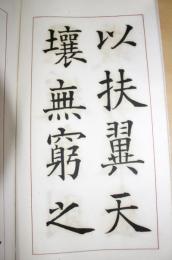 以扶翼天
壤無窮之